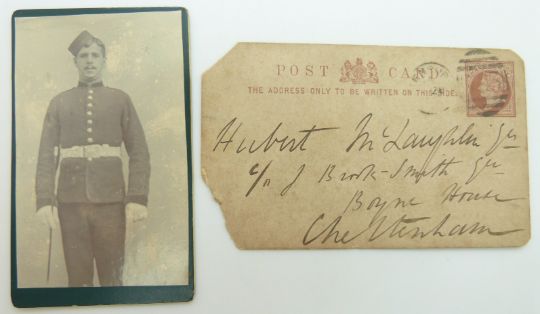 POST CARD
THE ADDRESS ONLY TO BE WRITTEN ON THIS SIDE.
Hubert McLaughlin Esq
c/o J Brook-Smith Esq
Boyne House
Cheltenham